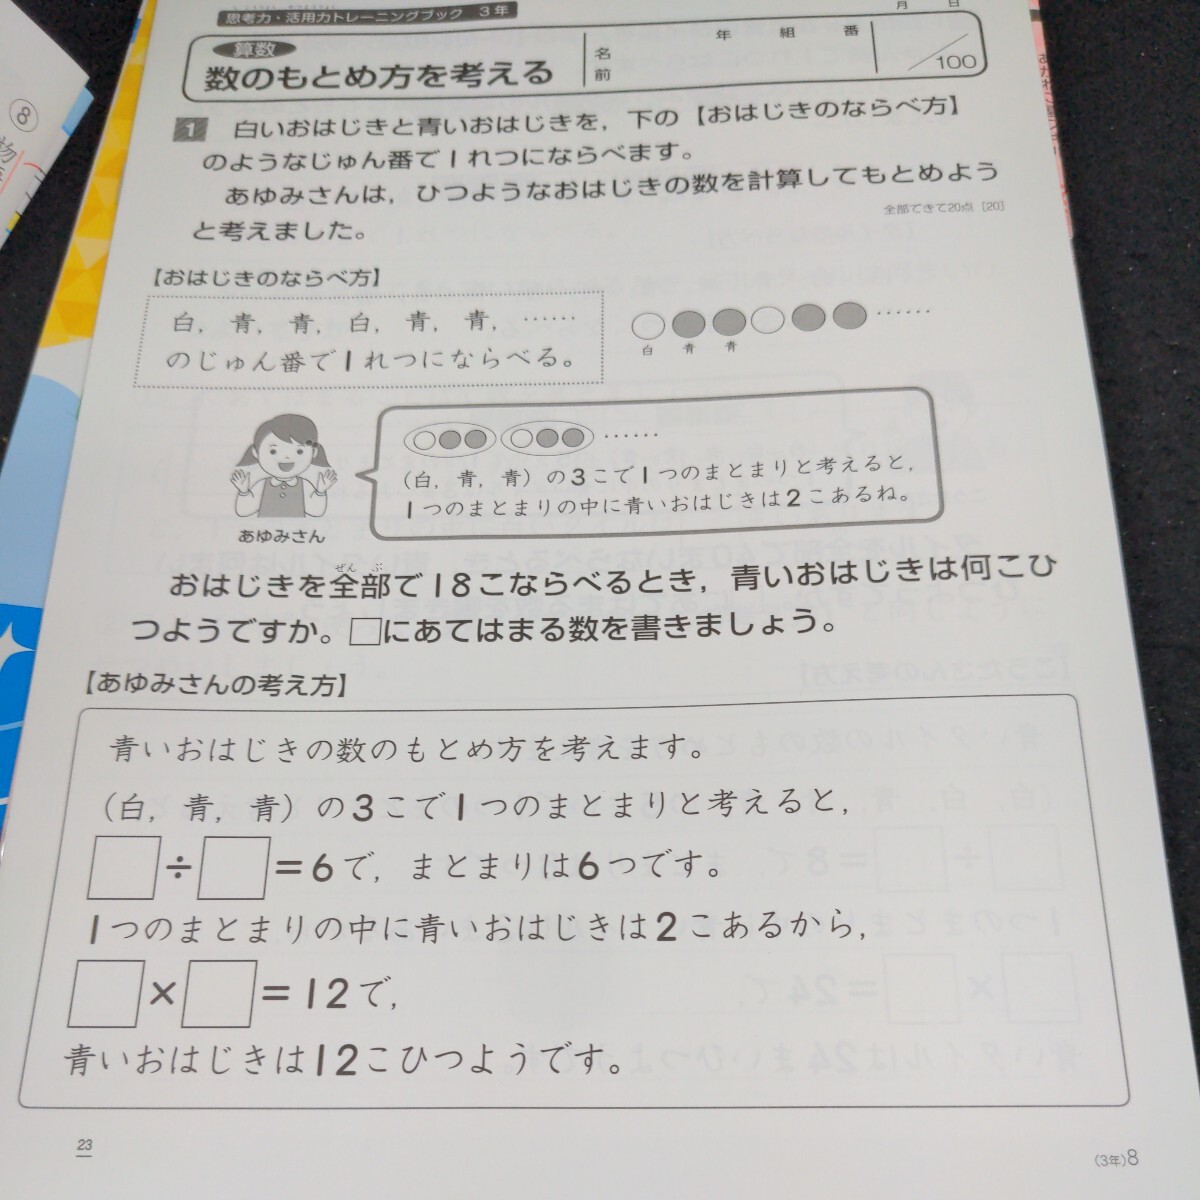 思考力・活用力トレーニングブック 3年
月 日
算数
数のもとめ方を考える
名前
年 組 番
/100
1 白いおはじきと青いおはじきを，下の【おはじきのならべ方】
のようなじゅん番で1れつにならべます。
あゆみさんは，ひつようなおはじきの数を計算してもとめよう
と考えました。
全部できて20点 [20]
【おはじきのならべ方】
白，青，青，白，青，青，……
のじゅん番で1れつにならべる。
……
白 青 青
……
（白，青，青）の3こで1つのまとまりと考えると，
1つのまとまりの中に青いおはじきは2こあるね。
あゆみさん
ぜん ぶ
おはじきを全部で18こならべるとき，青いおはじきは何こひ
つようですか。□にあてはまる数を書きましょう。
【あゆみさんの考え方】
青いおはじきの数のもとめ方を考えます。
（白，青，青）の3こで1つのまとまりと考えると，
□÷□=6で，まとまりは6つです。
1つのまとまりの中に青いおはじきは2こあるから，
□×□=12で，
青いおはじきは12こひつようです。
23
(3年)8
⑧